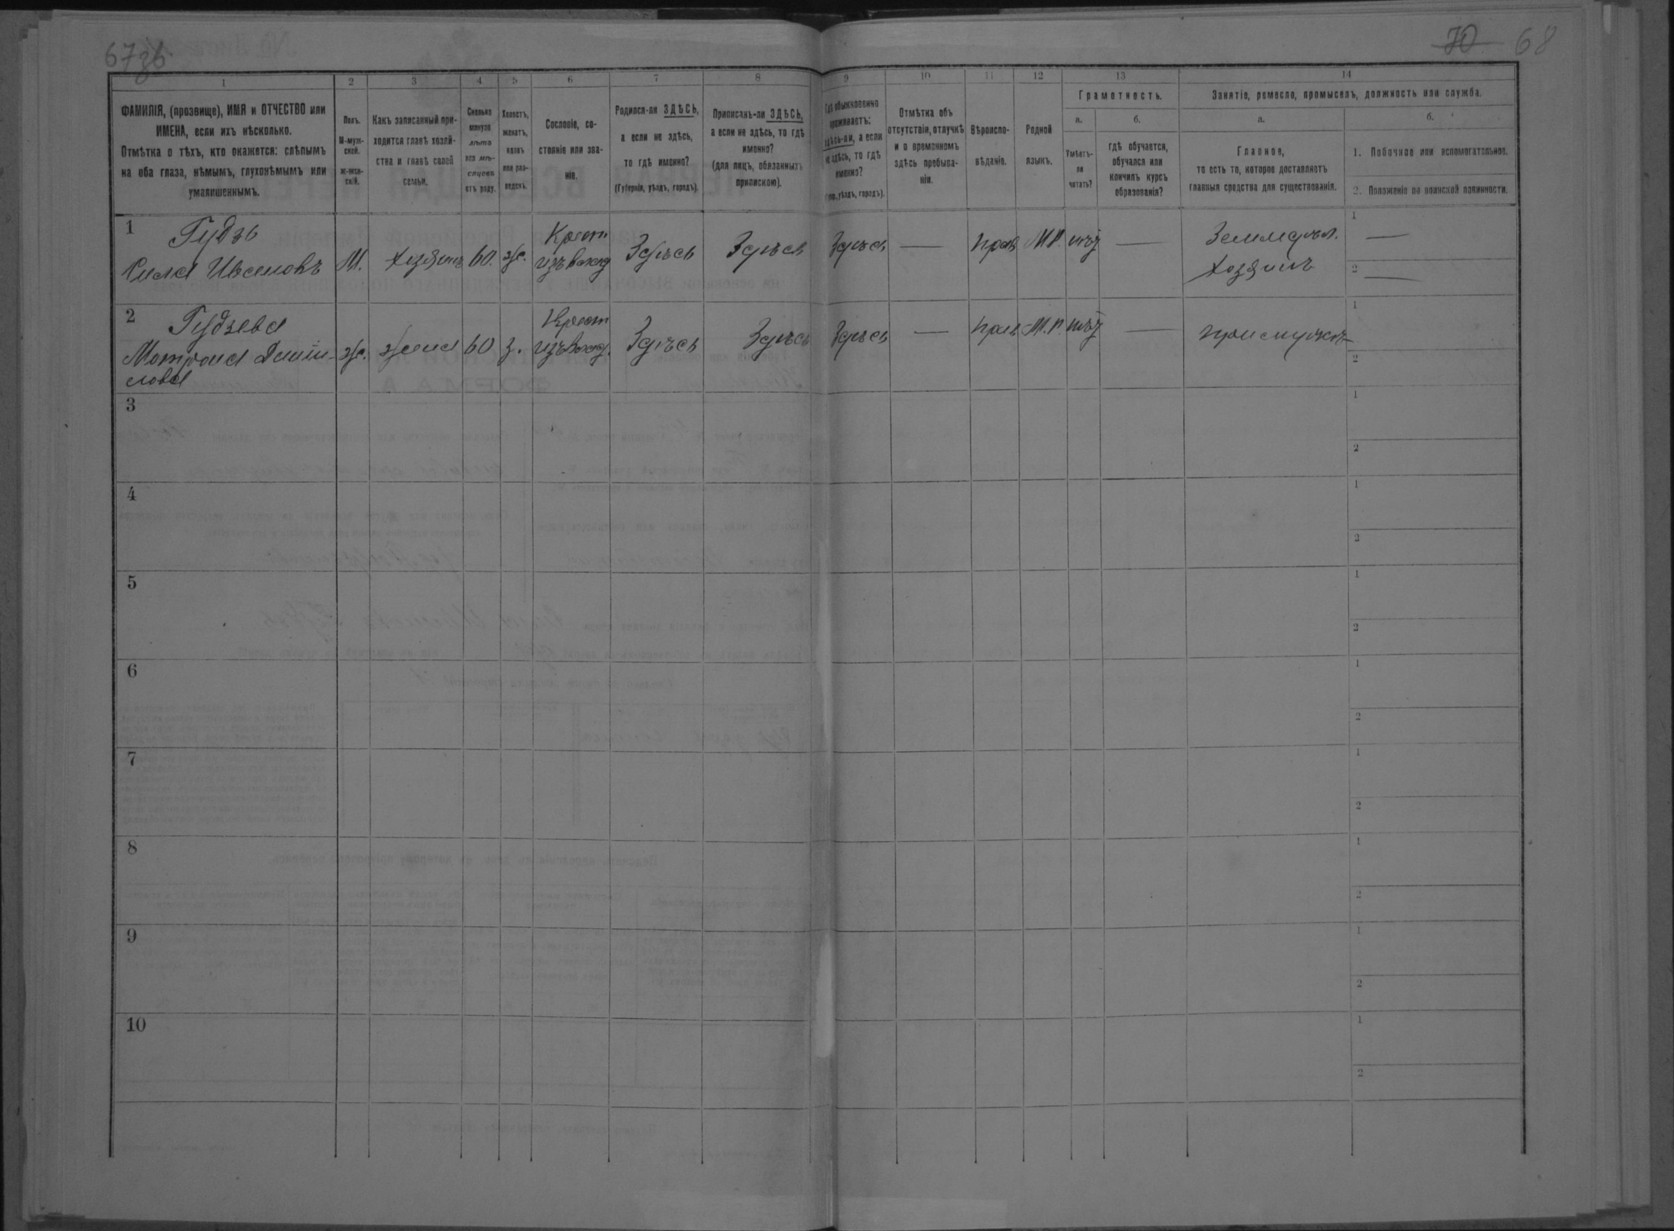 67зб
70 68
1 2 3 4 5 6 7 8 9 10 11 12 13 14
ФАМИЛІЯ, (прозвище), ИМЯ и ОТЧЕСТВО или
ИМЕНА, если ихъ нѣсколько.
Отмѣтка о тѣхъ, кто окажется: слѣпымъ
на оба глаза, нѣмымъ, глухонѣмымъ или
умалишеннымъ.
Полъ.
М-муж-
ской.
Ж-жен-
скій.
Какъ записанный при-
ходится главѣ хозяй-
ства и главѣ своей
семьи.
Сколько
минуло
лѣтъ
или мѣ-
сяцевъ
отъ роду.
Холостъ,
женатъ,
вдовъ
или раз-
веденъ.
Сословіе, со-
стояніе или зва-
ніе.
Родился-ли ЗДѢСЬ,
а если не здѣсь,
то гдѣ именно?
(Губернія, уѣздъ, городъ).
Приписанъ-ли ЗДѢСЬ,
а если не здѣсь, то гдѣ
именно?
(для лицъ, обязанныхъ
припискою).
Гдѣ обыкновенно
проживаетъ:
здѣсь-ли, а если
не здѣсь, то гдѣ
именно?
(Губ., уѣздъ, городъ).
Отмѣтка объ
отсутствіи, отлучкѣ
и о временномъ
здѣсь пребыва-
ніи.
Вѣроиспо-
вѣданіе.
Родной
языкъ.
Грамотность.
а.
Умѣетъ-
ли
читать?
б.
гдѣ обучается,
обучался или
кончилъ курсъ
образованія?
Занятіе, ремесло, промыселъ, должность или служба.
а.
Главное,
то есть то, которое доставляетъ
главныя средства для существованія.
б.
1. Побочное или вспомогательное.
2. Положеніе по воинской повинности.
1 Гудзь
Сила Ивановъ М. хозяинъ 60 ж. Крест. изъ влад. Здѣсь Здѣсь Здѣсь — Прав М.Р. нѣтъ — Земледѣл. хозяинъ 1 — 2 —
2 Гудзева
Матрона Дани-
лова ж. жена 60 з. Крест. изъ влад. Здѣсь Здѣсь Здѣсь — Прав М.Р. нѣтъ — при мужѣ 1 2
3 1 2
4 1 2
5 1 2
6 1 2
7 1 2
8 1 2
9 1 2
10 1 2